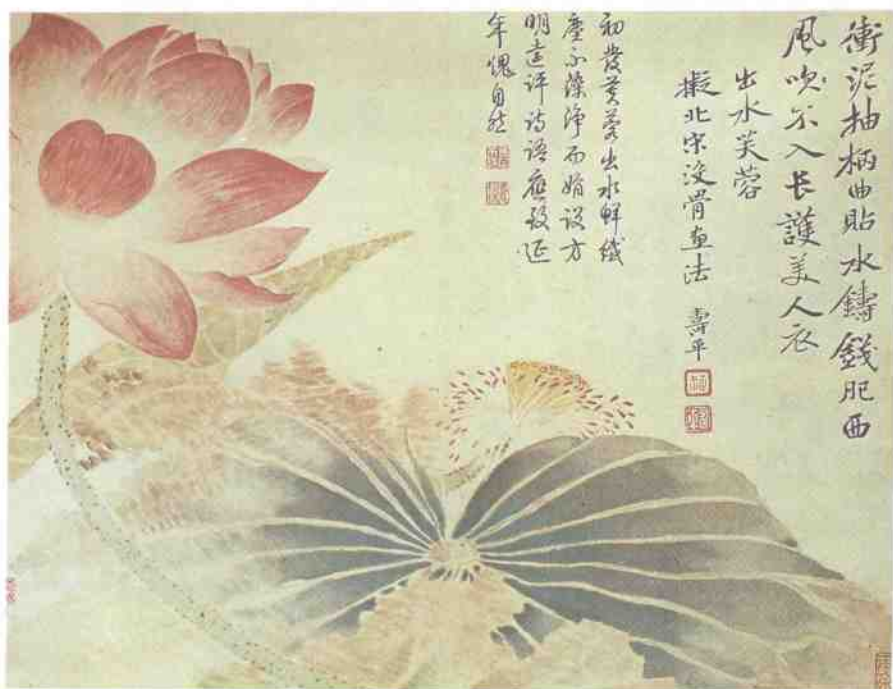 衝泥抽柄曲貼水鑄錢肥西
風吹不入長護美人衣
出水芙蓉
擬北宋沒骨畫法 壽平
初發芙蓉出水鮮纖
塵不淨而娟設方
明遠評詩語應致延
年愧自然